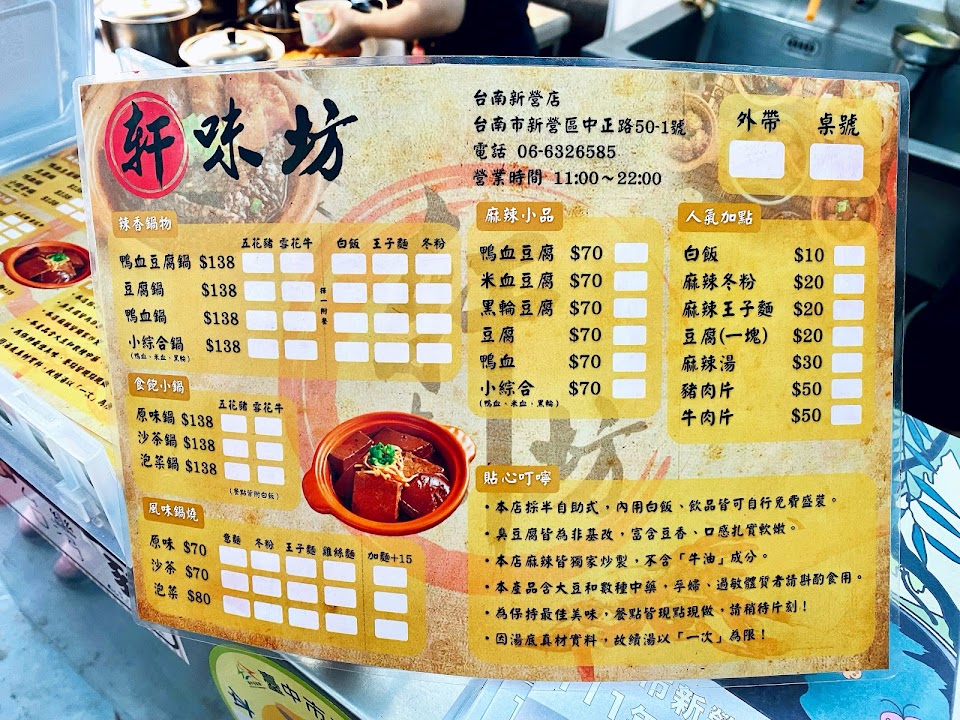 軒味坊
台南新營店
台南市新營區中正路50-1號
電話 06-6326585
營業時間 11:00~22:00
外帶 桌號
辣香鍋物
五花豬 雪花牛 白飯 王子麵 冬粉
鴨血豆腐鍋 $138
豆腐鍋 $138
鴨血鍋 $138
小綜合鍋 $138
(鴨血、米血、黑輪)
擇一附餐
食飽小鍋
五花豬 雪花牛
原味鍋 $138
沙茶鍋 $138
泡菜鍋 $138
(餐點皆附白飯)
風味鍋燒
意麵 冬粉 王子麵 雞絲麵 加麵+15
原味 $70
沙茶 $70
泡菜 $80
麻辣小品
鴨血豆腐 $70
米血豆腐 $70
黑輪豆腐 $70
豆腐 $70
鴨血 $70
小綜合 $70
(鴨血、米血、黑輪)
人氣加點
白飯 $10
麻辣冬粉 $20
麻辣王子麵 $20
豆腐(一塊) $20
麻辣湯 $30
豬肉片 $50
牛肉片 $50
貼心叮嚀
·本店採半自助式,內用白飯、飲品皆可自行免費盛裝。
·臭豆腐皆為非基改,富含豆香、口感扎實軟嫩。
·本店麻辣皆獨家炒製,不含「牛油」成分。
·本產品含大豆和數種中藥,孕婦、過敏體質者請斟酌食用。
·為保持最佳美味,餐點皆現點現做,請稍待片刻!
·因湯底真材實料,故續湯以「一次」為限!
臺中市